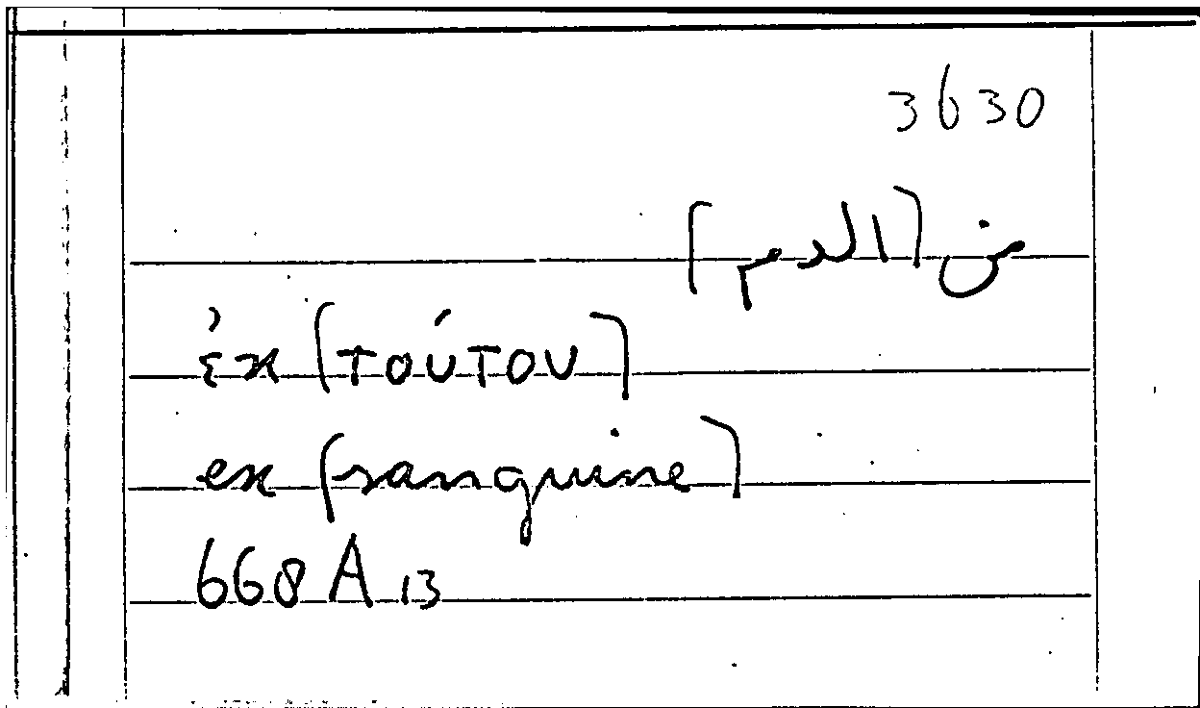 3630
من [الدم]
ἐκ [τούτου]
ex [sanguine]
668 A 13